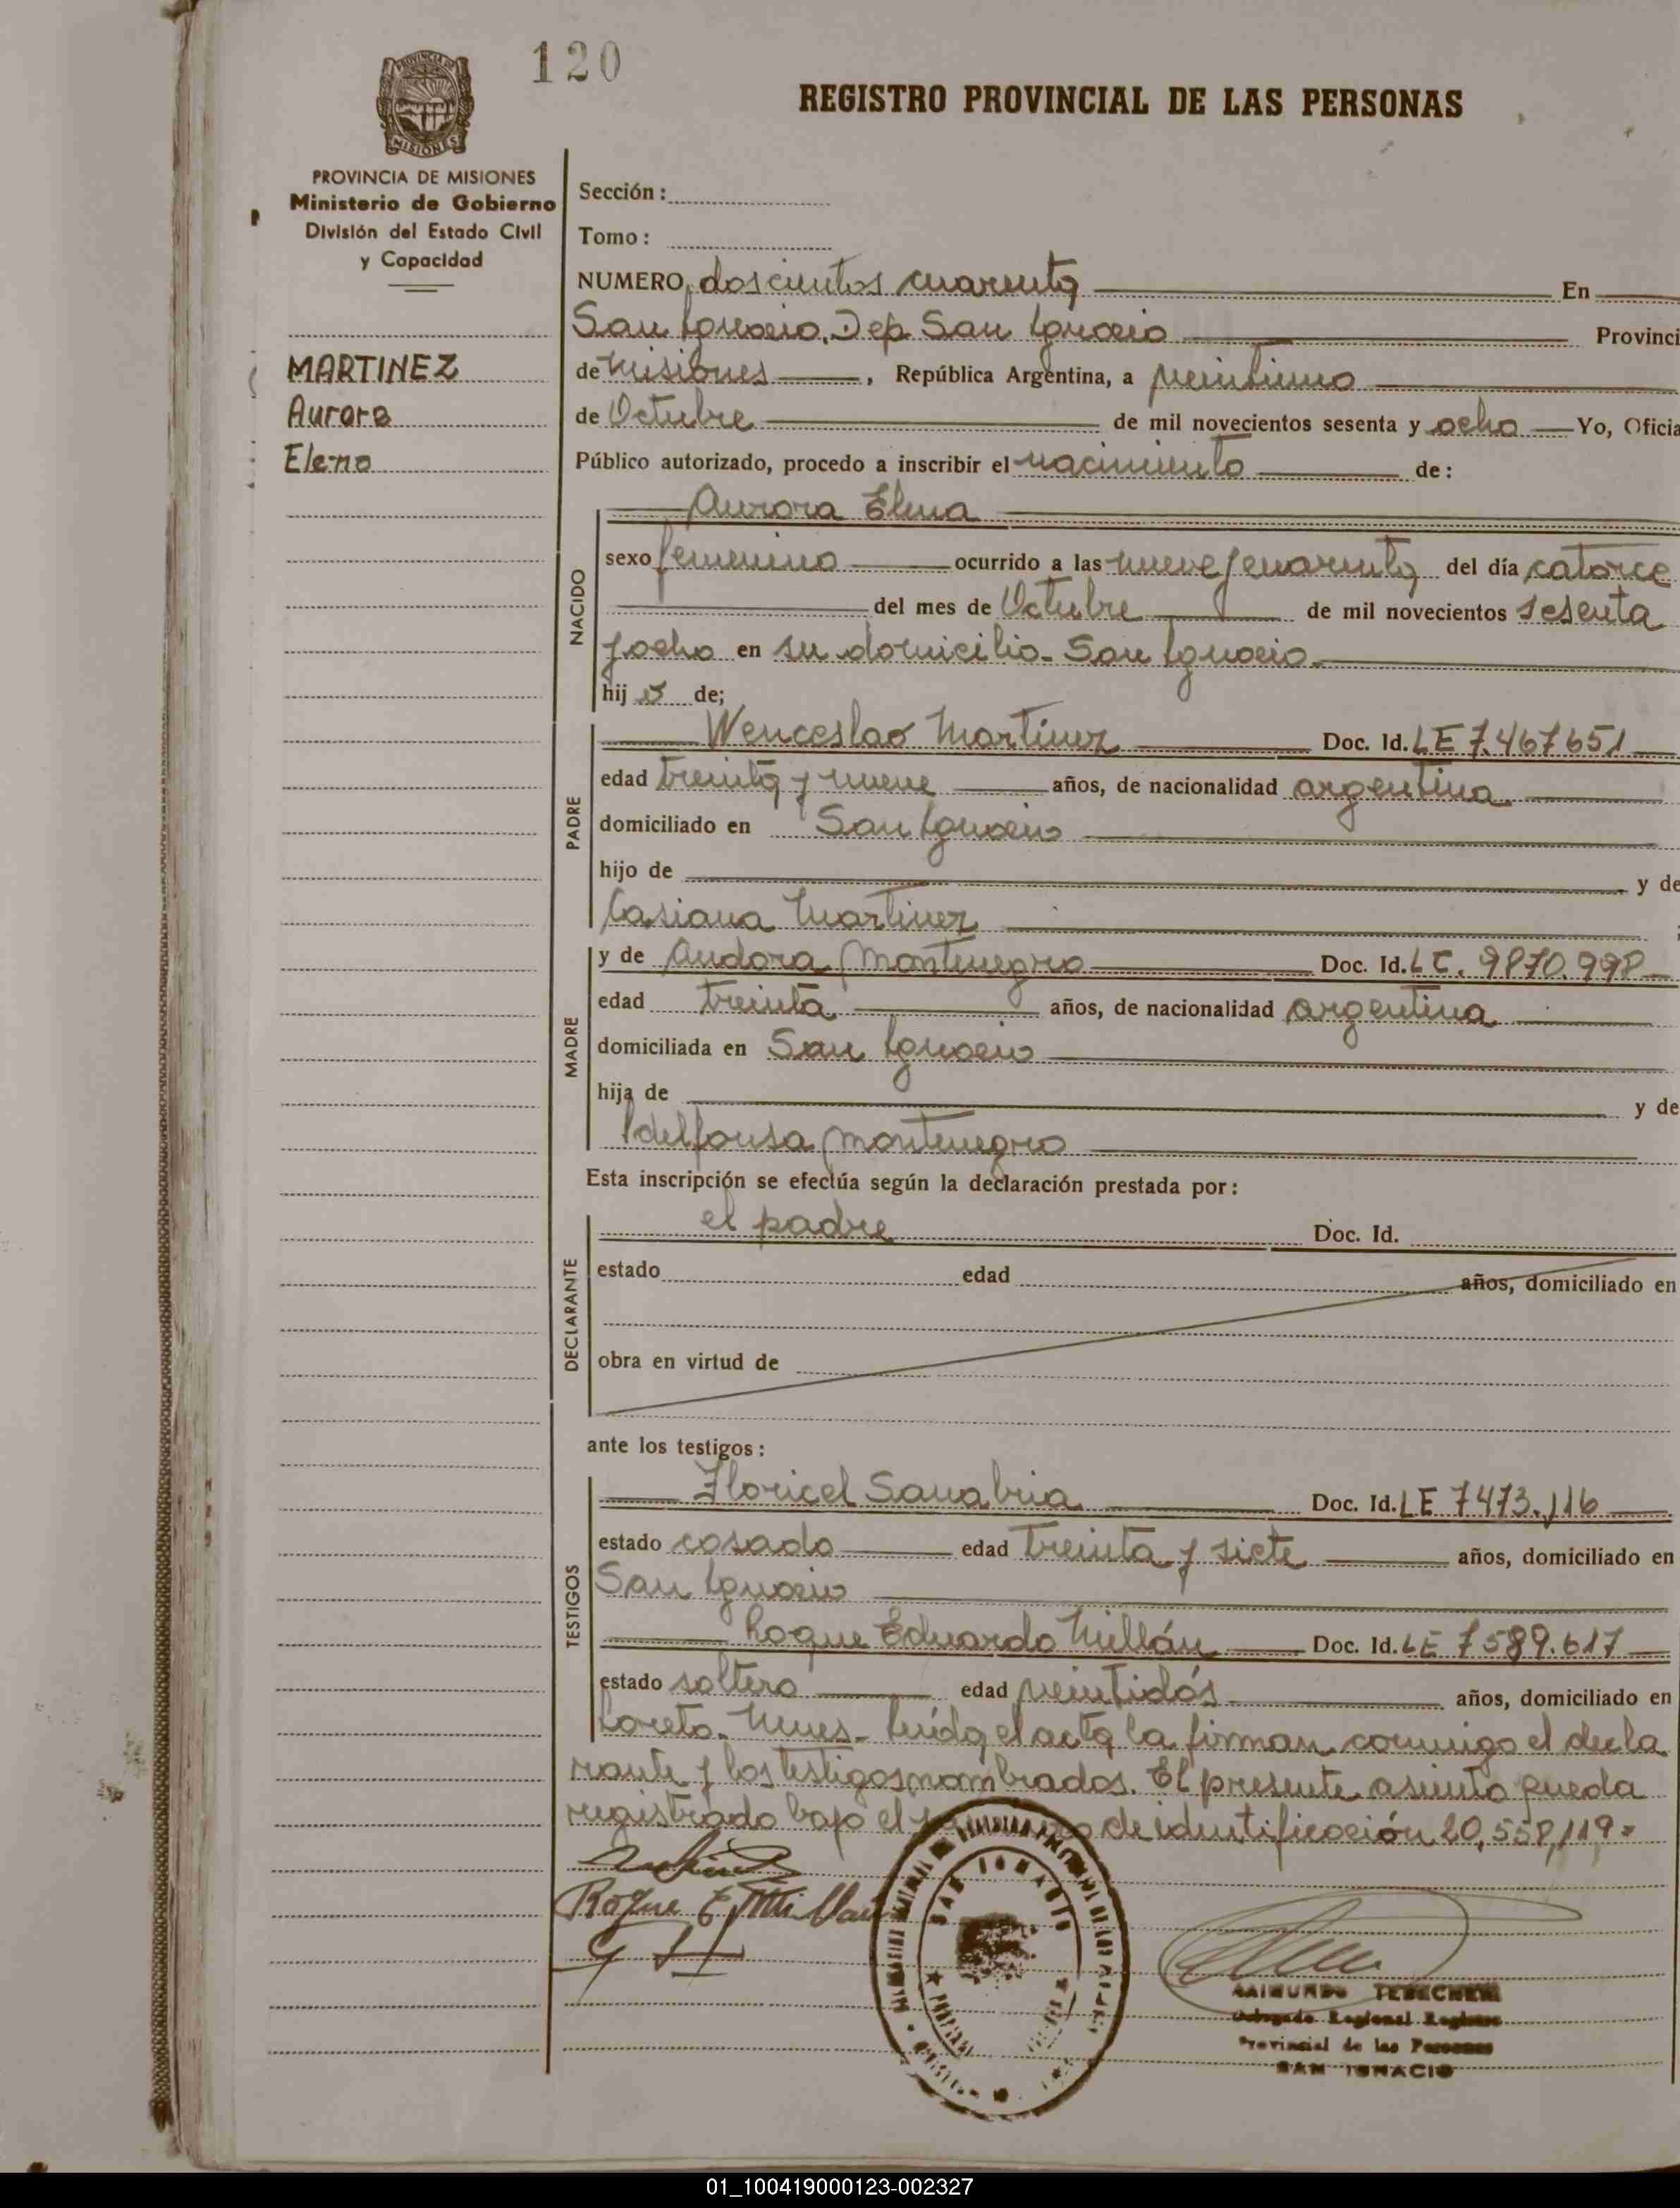 120
REGISTRO PROVINCIAL DE LAS PERSONAS
PROVINCIA DE MISIONES
Ministerio de Gobierno
División del Estado Civil
y Capacidad
MARTINEZ
Aurora
Elena
Sección:
Tomo:
NUMERO doscientos cuarenta En
San Ignacio. Dep. San Ignacio Provinci
de Misiones, República Argentina, a veintiuno
de Octubre de mil novecientos sesenta y ocho Yo, Oficia
Público autorizado, procedo a inscribir el nacimiento de:
NACIDO
Aurora Elena
sexo femenino ocurrido a las nueve y cuarenta del día catorce
del mes de Octubre de mil novecientos sesenta
y ocho en su domicilio - San Ignacio.
hija de;
PADRE
Wenceslao Martinez Doc. Id. LE 7.467651
edad treinta y nueve años, de nacionalidad argentina
domiciliado en San Ignacio
hijo de y de
Casiana Martinez
MADRE
y de Audora Montenegro Doc. Id. LC. 9870.998
edad treinta años, de nacionalidad argentina
domiciliada en San Ignacio
hija de y de
Idelfonsa Montenegro
Esta inscripción se efectúa según la declaración prestada por:
DECLARANTE
el padre Doc. Id.
estado edad años, domiciliado en
obra en virtud de
ante los testigos:
TESTIGOS
Floricel Sanabria Doc. Id. LE 7473.116
estado casado edad treinta y siete años, domiciliado en
San Ignacio
Roque Eduardo Millán Doc. Id. LE 7589.617
estado soltero edad veintidós años, domiciliado en
Loreto. Mnes - Leída el acta la firman conmigo el decla
rante y los testigos nombrados. El presente asiento queda
registrado bajo el de identificación 20,558,119=
Roque E Millán
SAN IGNACIO
RAIMUNDO TEBECHERI
Delegado Regional Registro
Provincial de las Personas
SAN IGNACIO
01_100419000123-002327